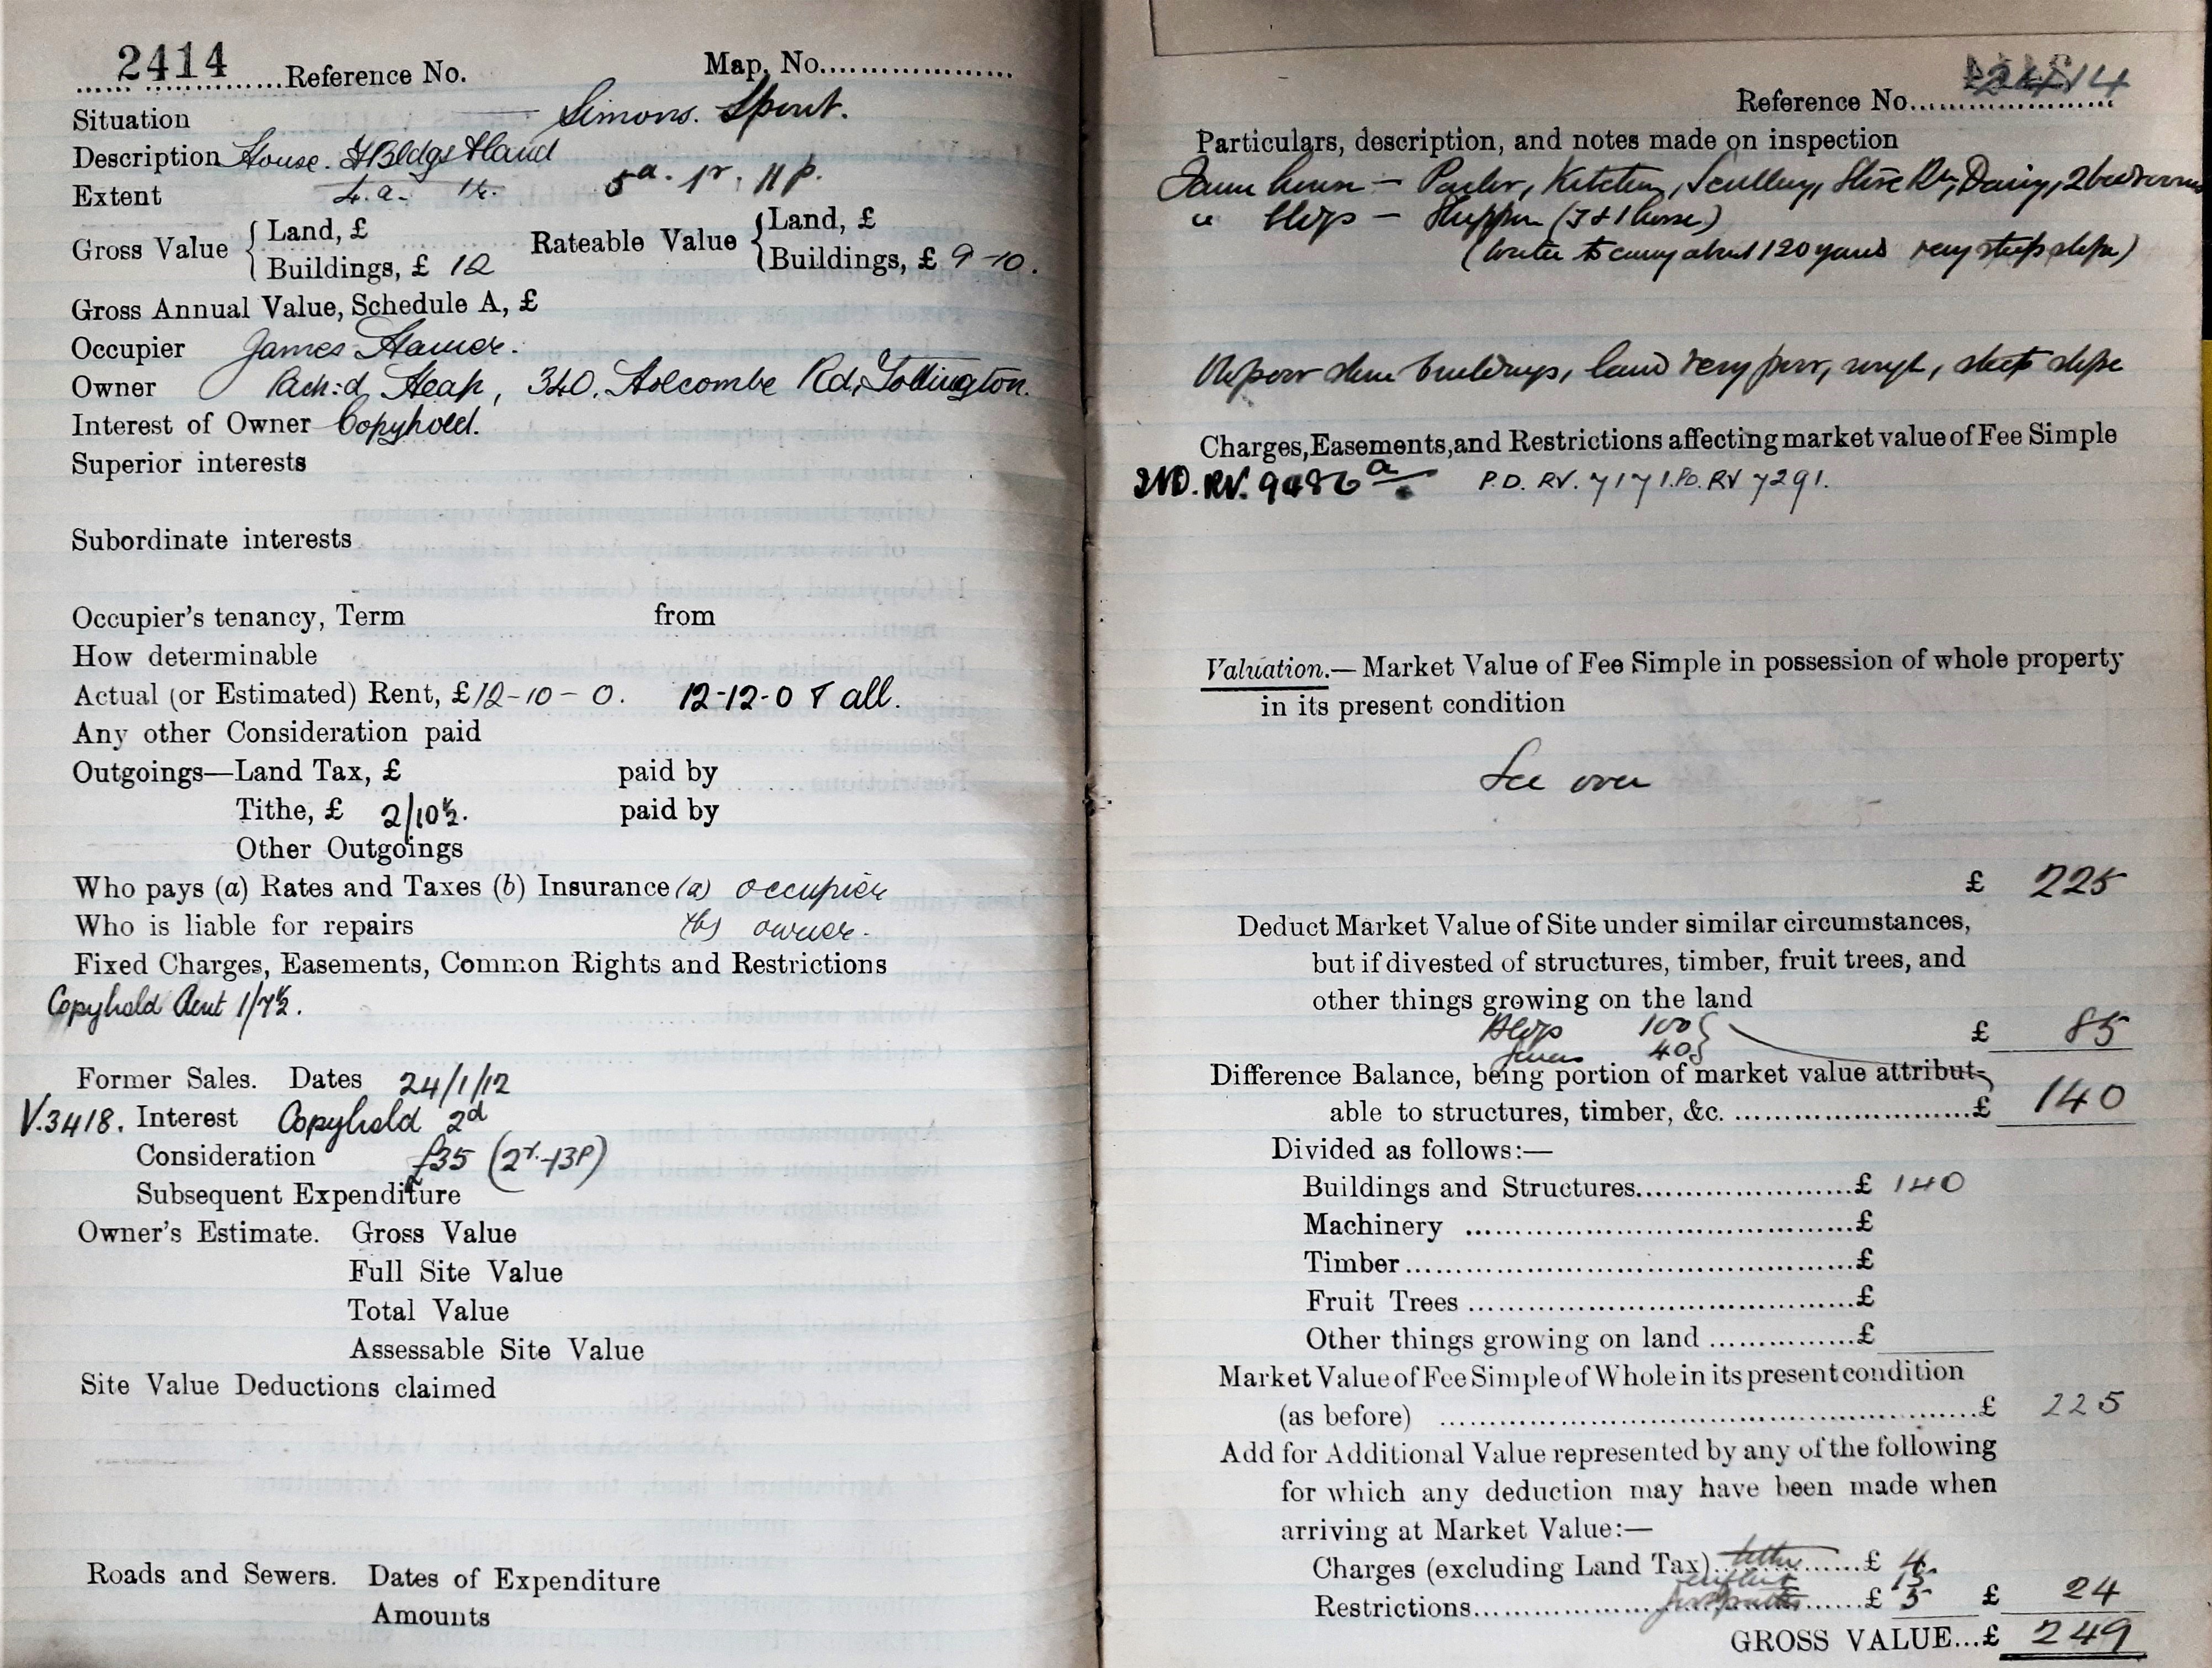 2414 Reference No. Map. No.
Situation Simons. Spout.
Description House. F Bldgs & land
Extent 4. a. 1r. 5a. 1r. 11p.
Gross Value { Land, £ Rateable Value { Land, £
Buildings, £ 12 Buildings, £ 9-10.
Gross Annual Value, Schedule A, £
Occupier James Hamer.
Owner Rich:d Heap, 340. Holcombe Rd, Tottington.
Interest of Owner Copyhold.
Superior interests
Subordinate interests
Occupier's tenancy, Term from
How determinable
Actual (or Estimated) Rent, £12-10-0. 12-12-0 T all.
Any other Consideration paid
Outgoings—Land Tax, £ paid by
Tithe, £ 2/10½. paid by
Other Outgoings
Who pays (a) Rates and Taxes (b) Insurance (a) occupier
Who is liable for repairs (b) owner.
Fixed Charges, Easements, Common Rights and Restrictions
Copyhold Rent 1/7½.
Former Sales. Dates 24/1/12
V.3418. Interest Copyhold 2d
Consideration £35 (2r-13p)
Subsequent Expenditure
Owner's Estimate. Gross Value
Full Site Value
Total Value
Assessable Site Value
Site Value Deductions claimed
Roads and Sewers. Dates of Expenditure
Amounts
Reference No. 2414
Particulars, description, and notes made on inspection
Farm house – Parlor, Kitchen, Scullery, Store Rm, Dairy, 2 bedrooms
" bldgs – Shippon (7 & 1 horse)
(water to carry about 120 yards very steep slope)
V poor stone buildings, land very poor, rough, steep slope
Charges, Easements, and Restrictions affecting market value of Fee Simple
2ND. RV. 9486a P.D. RV. 7171. P.D. RV 7291.
Valuation.— Market Value of Fee Simple in possession of whole property
in its present condition
See over
£ 225
Deduct Market Value of Site under similar circumstances,
but if divested of structures, timber, fruit trees, and
other things growing on the land
Bldgs 100 £ 85
fences 40
Difference Balance, being portion of market value attribut-
able to structures, timber, &c. £ 140
Divided as follows:—
Buildings and Structures £ 140
Machinery £
Timber £
Fruit Trees £
Other things growing on land £
Market Value of Fee Simple of Whole in its present condition
(as before) £ 225
Add for Additional Value represented by any of the following
for which any deduction may have been made when
arriving at Market Value:—
Charges (excluding Land Tax) tithe £ 4
15
Restrictions £ 5 £ 24
GROSS VALUE...£ 249